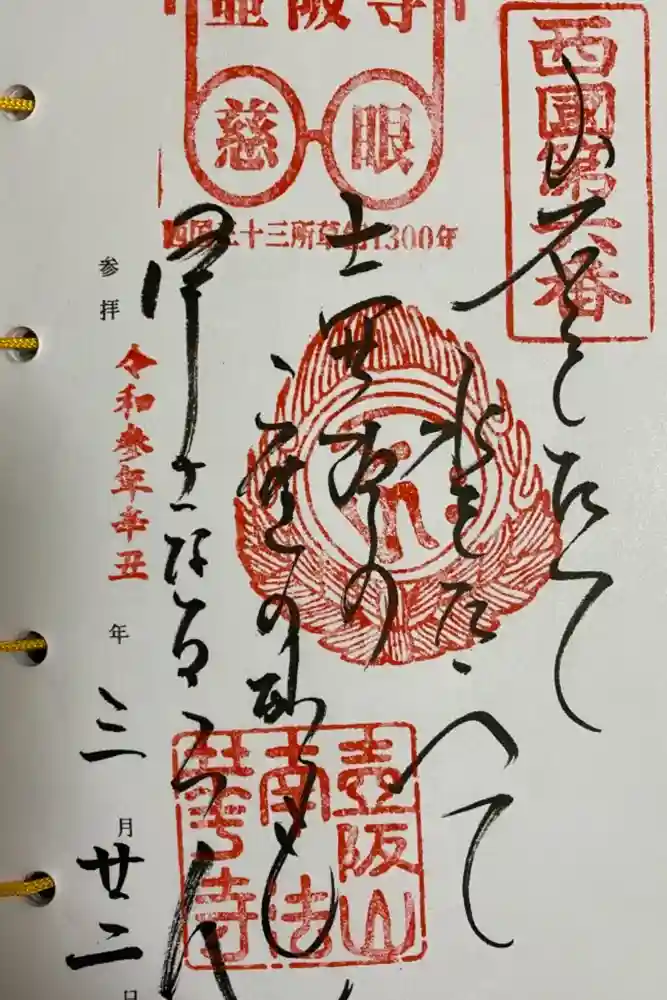 西國第六番
壷阪寺
慈眼
西国三十三所草創1300年
岩をたて
水をたたへて
壺阪の
庭の砂も
浄土なるらん
壺阪山
南法
華寺
参拝 令和参年辛丑年三月廿二日